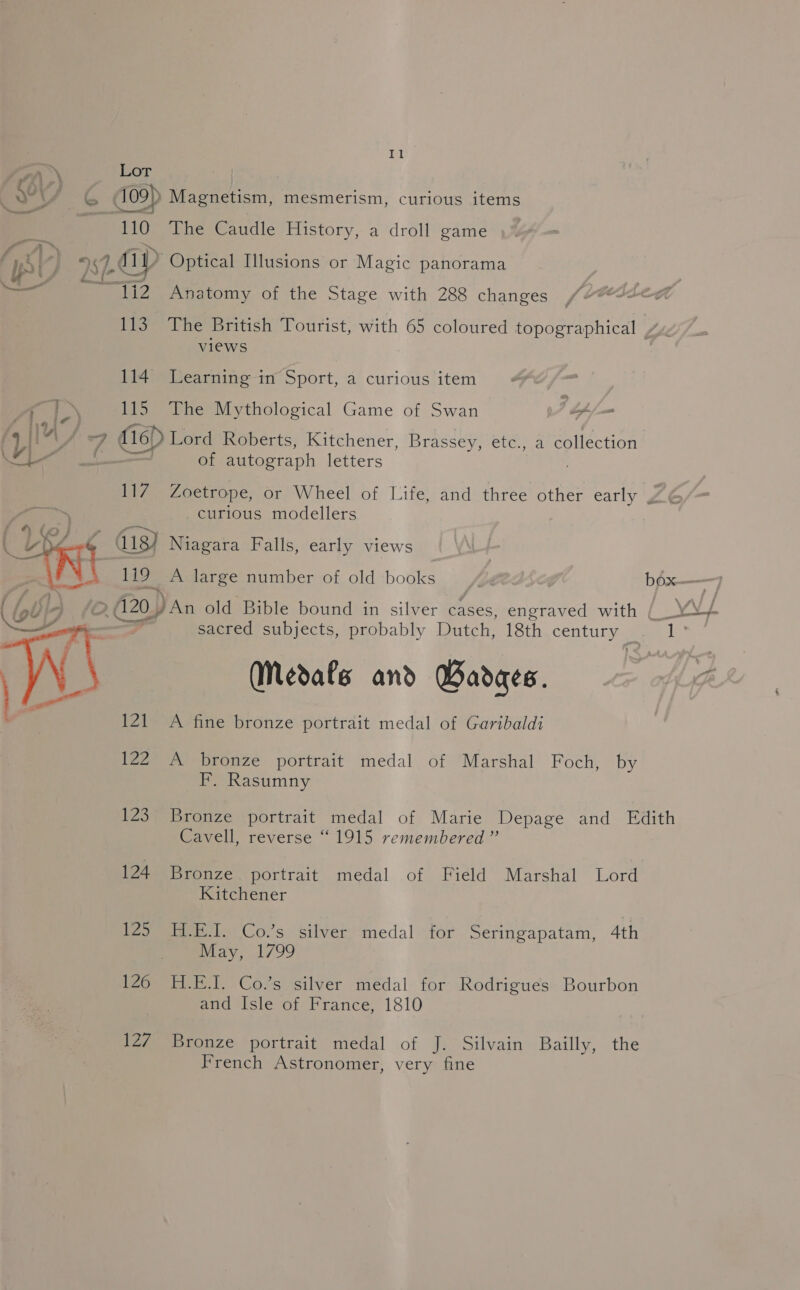 11
LOT
6 109 Magnetism, mesmerism, curious items
110 The Caudle History, a droll game
111 Optical Illusions or Magic panorama
112 Anatomy of the Stage with 288 changes
113 The British Tourist, with 65 coloured topographical
views
114 Learning in Sport, a curious item
115 The Mythological Game of Swan
7 116 Lord Roberts, Kitchener, Brassey, etc., a collection
of autograph letters
117 Zoetrope, or Wheel of Life, and three other early
curious modellers
118 Niagara Falls, early views
119 A large number of old books box
120 An old Bible bound in silver cases, engraved with
sacred subjects, probably Dutch, 18th century
Medals and Badges.
121 A fine bronze portrait medal of Garibaldi
122 A bronze portrait medal of Marshal Foch, by
F. Rasumny
123 Bronze portrait medal of Marie Depage and Edith
Cavell, reverse “ 1915 remembered ”
124 Bronze portrait medal of Field Marshal Lord
Kitchener
125 H.E.I. Co.’s silver medal for Seringapatam, 4th
May, 1799
126 H.E.I. Co.’s silver medal for Rodrigues Bourbon
and Isle of France, 1810
127 Bronze portrait medal of J. Silvain Bailly, the
French Astronomer, very fine